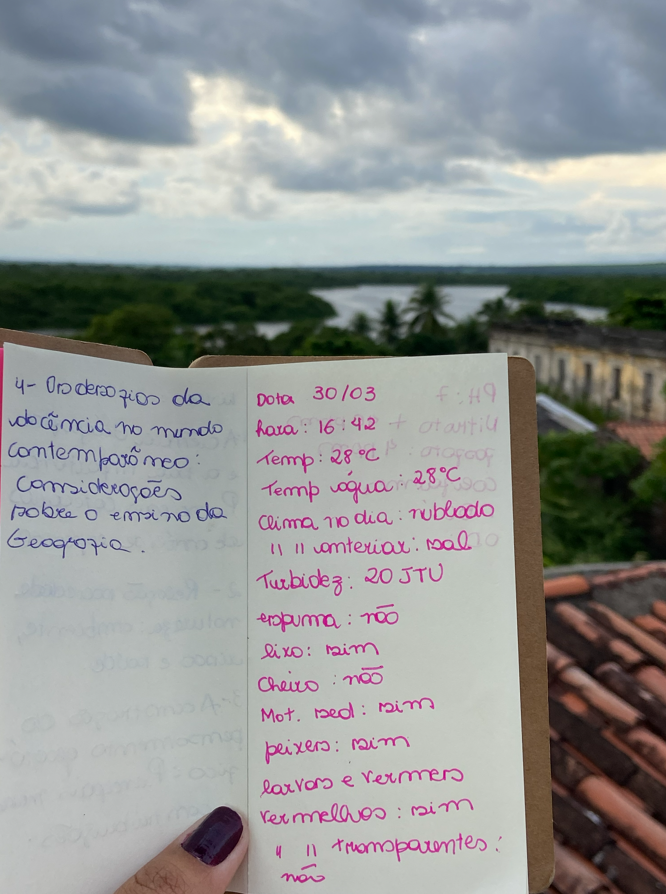 4- Os desafios da
docência no mundo
contemporâneo:
considerações
sobre o ensino da
Geografia.
Data 30/03
hora: 16:42
Temp: 28°C
Temp água: 28°C
Clima no dia: nublado
" " anterior: sol
Turbidez: 20 JTU
espuma: não
lixo: sim
Cheiro: não
Mat. sed: sim
peixes: sim
larvas e vermes
vermelhos: sim
" " transparentes:
não